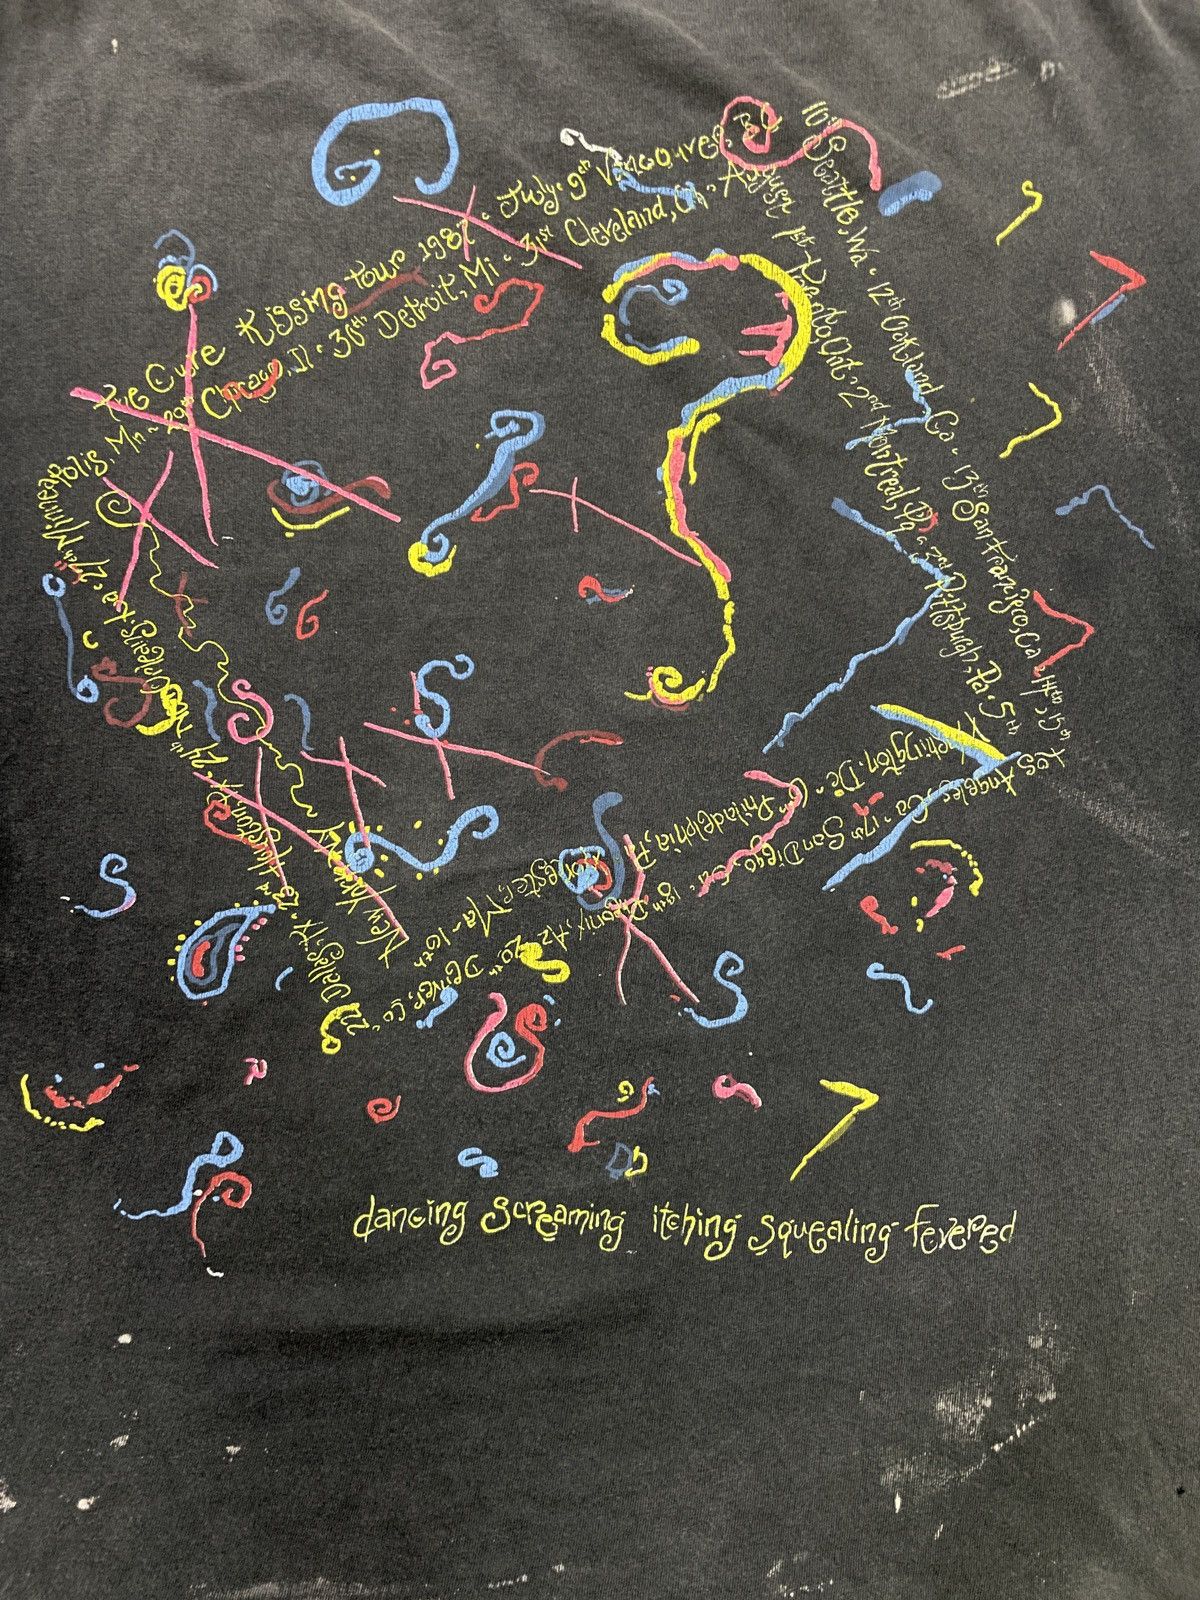 The Cure Kissing tour 1987 · July · 9th Vancouver, BC
10th Seattle, Wa · 12th Oakland Ca · 13th San Francisco, Ca · 14th, 15th
Los Angeles, Ca · 17th San Diego, Ca · 18th Phoenix, Az · 20th Denver, Co · 22nd
Dallas, Tx · 23rd Houston, Tx · 24th New Orleans, La · 27th Minneapolis, Mn ·
29th Chicago, Il · 30th Detroit, Mi · 31st Cleveland, Oh · August
1st Toronto Ont · 2nd Montreal, Pq · 3rd Pittsburgh, Pa · 5th
Washington. Dc · 6th Philadelphia, Pa
Worcester Ma · 10th
New York
dancing screaming itching squealing fevered